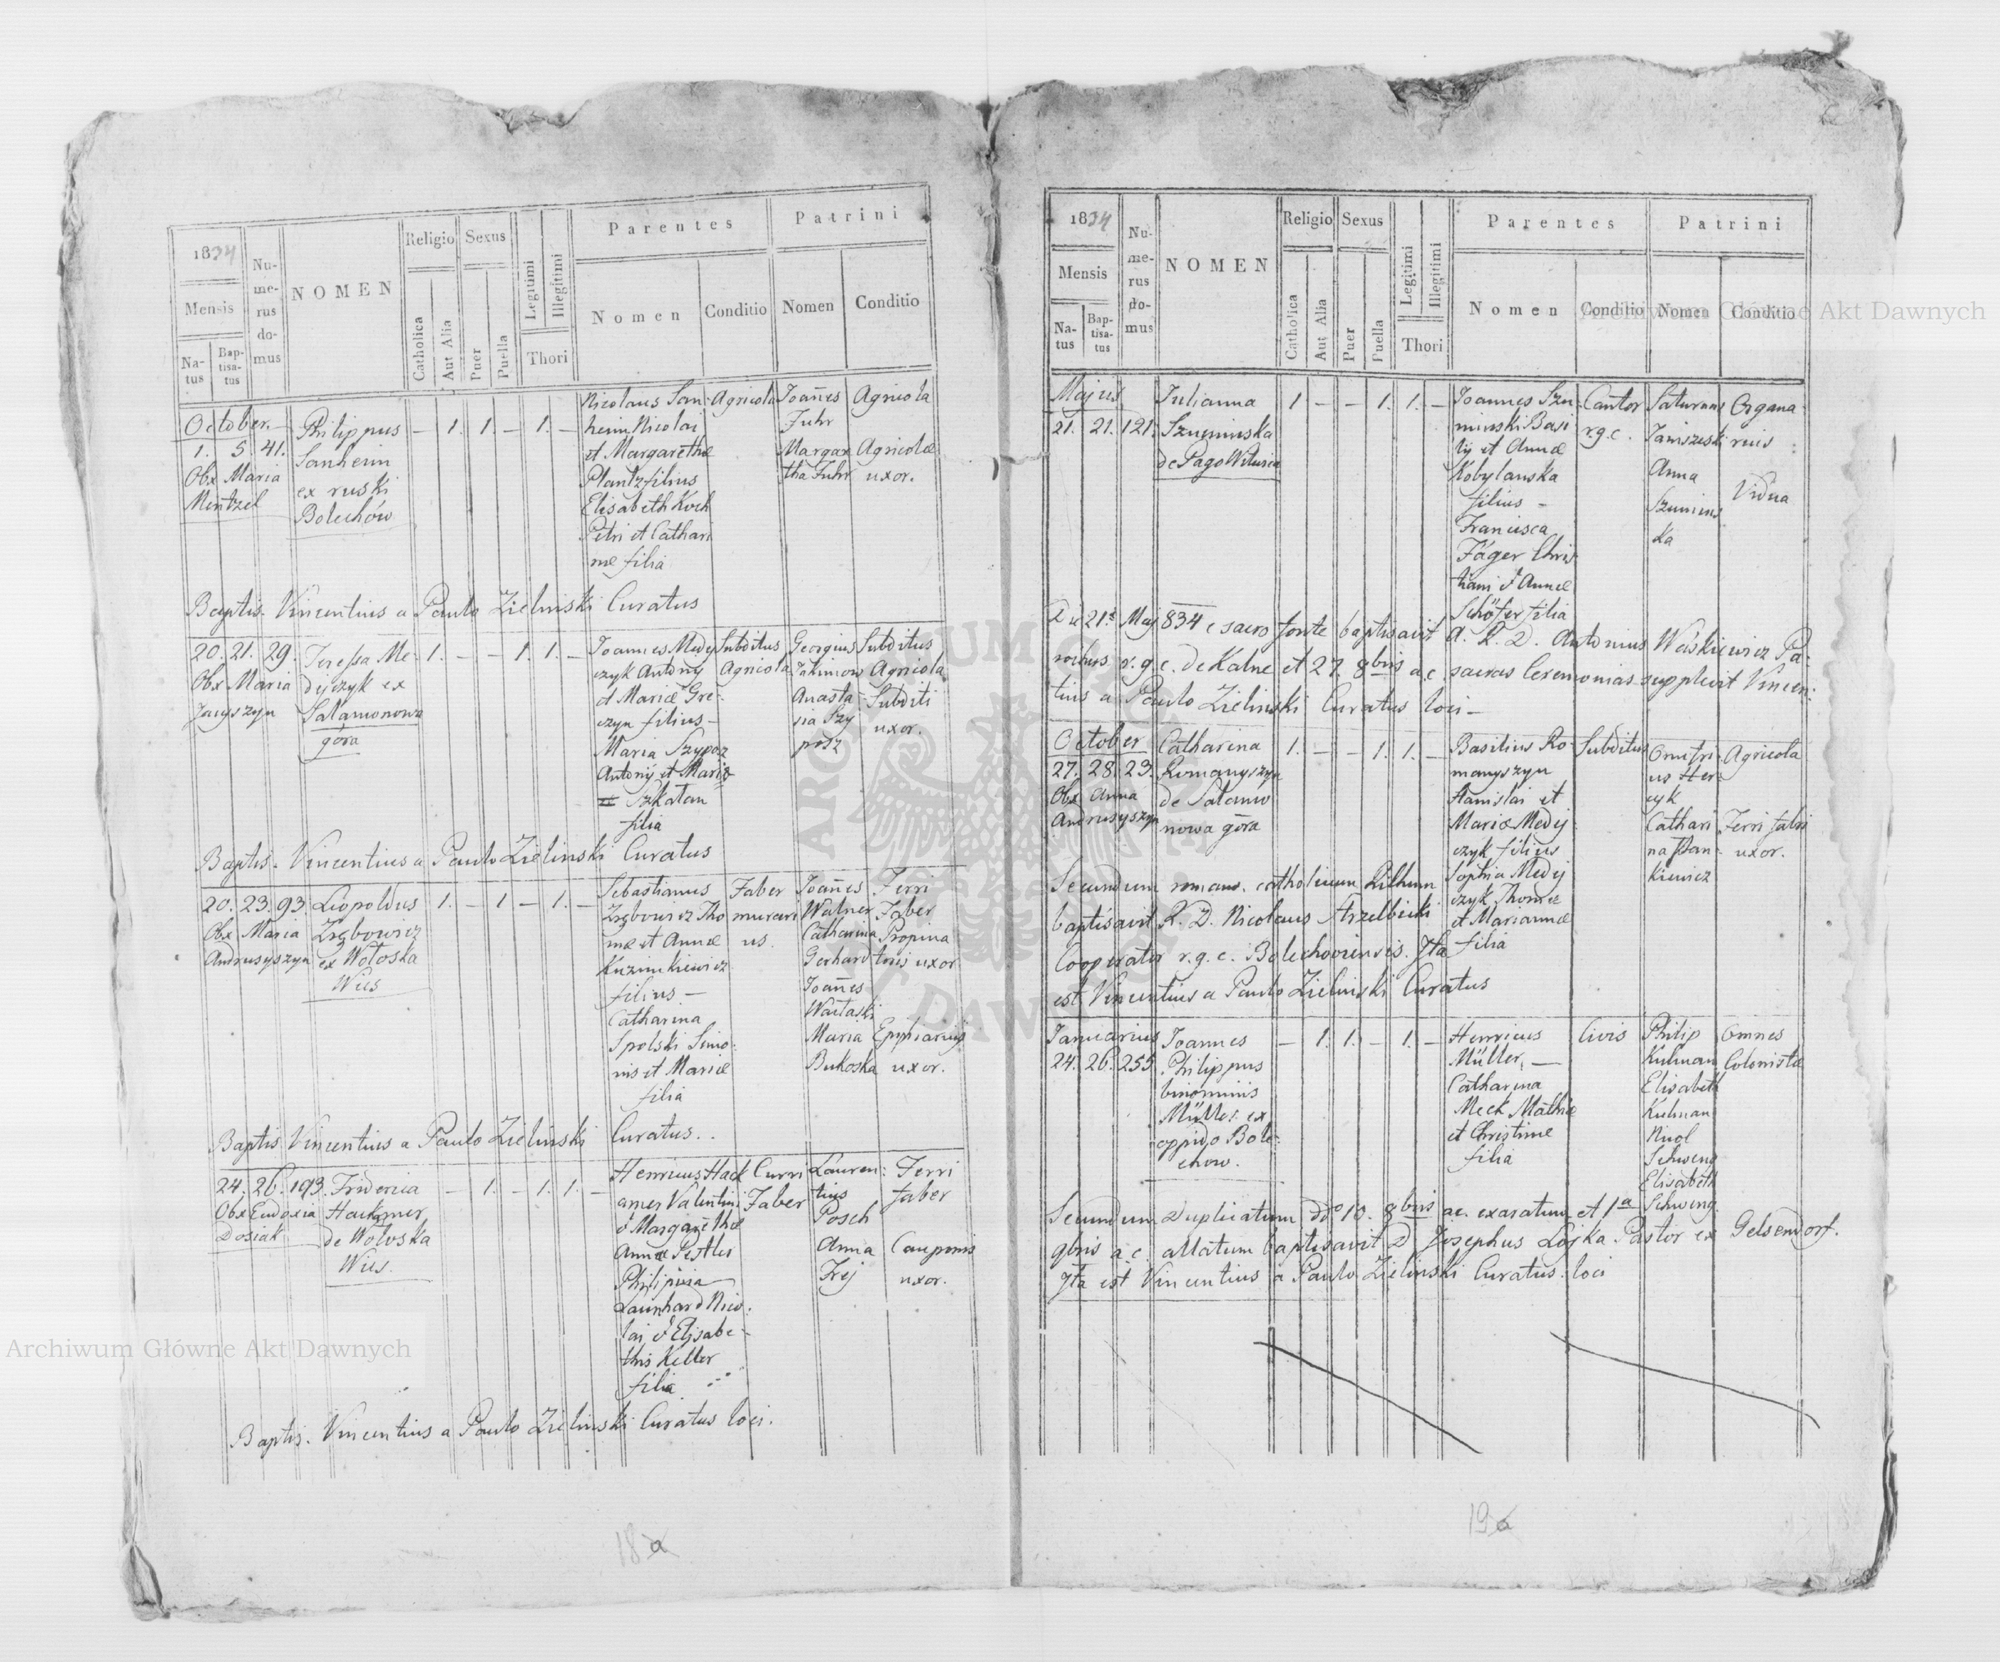 1834
Mensis
Na-
tus
Bap-
tisa-
tus
Nu-
me-
rus
do-
mus
NOMEN
Religio
Catholica
Aut Alia
Sexus
Puer
Puella
Legitimi
Illegitimi
Thori
Parentes
Nomen
Conditio
Patrini
Nomen
Conditio
October.
1. 5. 41.
Obx Maria
Mentzel
Philippus
Sanheim
ex ruski
Bolechów
– 1. 1. – 1. –
Nicolaus San-
heim Nicolai
et Margarethæ
Plantz filius
Elisabeth Koch
Petri et Cathari
næ filia
Agricola
Joañes
Fuhr
Margare
tha Fuhr
Agricola
Agricolæ
uxor.
Baptis. Vincentius a Paulo Zielinski Curatus
20. 21. 29.
Obx Maria
Jacyszyn
Teressa Me-
dyczyk ex
Salamonowa
góra
1. – – 1. 1. –
Joannes Medy
czyk Antonÿ
et Mariæ Gre-
czyn filius –
Maria Szypoz
Antonÿ et Mariæ
Szkatan
filia
Subditus
Agricola
Georgius
Jakimow
Anasta-
sia Szy
posz
Subditus
Agricola
Subditi
uxor.
Baptis. Vincentius a Paulo Zielinski Curatus
20. 23. 93.
Obx Maria
Andrusyszyn
Leopoldus
Zrębowicz
ex Wołoska
Wies
1. – 1 – 1. –
Sebastianus
Zrębowicz Tho
mæ et Annæ
Kuzimkiewicz
filius –
Catharina
Spolski Simo-
nis et Mariæ
filia
Faber
murari
us.
Joañes
Walner
Catharina
Gerhard
Joañes
Waitaski
Maria
Bukoska
Ferri
Faber
Propina
toris uxor
uxor.
Baptis Vincentius a Paulo Zielinski Curatus..
24. 26. 193.
Obx Eudoxia
Dosiak
Friderica
Hackmer
de Wołoska
Wies.
– 1. – 1. 1. –
Henricus Hack
amer Valentini
et Margarethæ
Annæ Pestler
Philipina
Launhard Nico-
lai et Elisabe-
this Keller
filia
Curri
Faber
Lauren-
tius
Posch
Anna
Frej
Ferri
faber
Cauponis
uxor.
Baptis. Vincentius a Paulo Zielinski Curatus loci.
18a
1834
Mensis
Na-
tus
Bap-
tisa-
tus
Nu-
me-
rus
do-
mus
NOMEN
Religio
Catholica
Aut Alia
Sexus
Puer
Puella
Legitimi
Illegitimi
Thori
Parentes
Nomen
Conditio
Patrini
Nomen
Conditio
Majus
21. 21. 121.
Julianna
Szuminska
de Pago Witwica
1 – – 1. 1. –
Joannes Szu-
minski Basi
lÿ et Annæ
Kobylanska
filius –
Francisca
Jäger Chris
tiani et Annæ
Schöfer filia
Cantor
r.g.c.
Saturnus
Janiszeski
Anna
Szumins
ka
Organa
rius
Vidua
Die 21a Maj 834 e sacro fonte baptisavit A. R. D. Antonius Waskiewicz Pa-
rochus r.g.c. de Kalne et 27 8bris a.c. sacras Ceremonias supplevit Vincen-
tius a Paulo Zielinski Curatus loci –
October
27. 28. 23.
Obx Anna
Andrusyszyn
Catharina
Romanyszyn
de Salamo
nowa góra
1. – – 1. 1. –
Basilius Ro-
manyszyn
Stanislai et
Mariæ Medy
czyk filius
Sophia Medy
czyk Thomæ
et Mariannæ
filia
Subditus
Omufri-
us Her-
cyk
Cathari
na Pan-
kiewicz
Agricola
Ferri fabri
uxor.
Secundum roman. catholicum Rithum
baptisavit R. D. Nicolaus Arzelbicki
Cooperator r.g.c. Bolechoviensis. Ita
est Vincentius a Paulo Zielinski Curatus
Januarius
24. 26. 255.
Joannes
Philippus
binominis
Müller ex
oppido Bole-
chow.
– 1. 1. – 1. –
Henricus
Müller, –
Catharina
Meck Mathiæ
et Christinæ
filia
Civis
Philip
Kulman
Elisabeth
Kulman
Nicol
Schweng
Elisabeth
Schweng
Omnes
Colonistæ
Secundum Duplicatum ddo 10. 8bris a.c. exaratum et 1a
9bris a c. allatum baptisavit D Josephus Lojka Pastor ex Gelsendorf.
Ita est Vincentius a Paulo Zielinski Curatus loci
19a
Archiwum Główne Akt Dawnych
Archiwum Główne Akt Dawnych